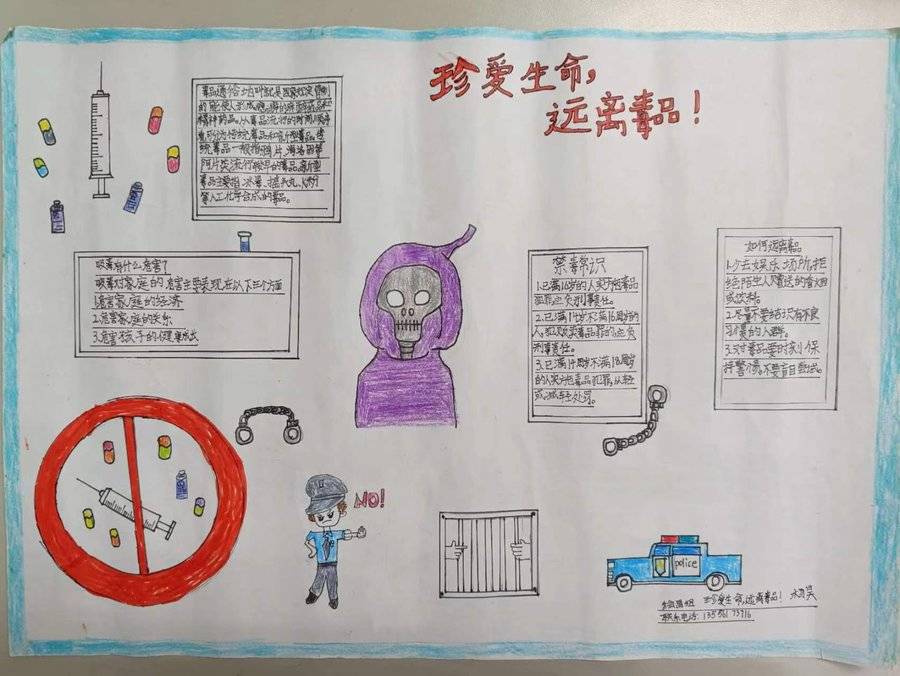 珍爱生命,
远离毒品!
的 能 使人形成瘾癖的麻醉药品和
精神药品。从毒品流行的时间顺序
统毒品一般指鸦片,海洛因等
阿片类流行较早的毒品。新型
毒品主要指:冰毒、摇头丸、K粉
等人工化学合成的毒品。
吸毒有什么危害?
吸毒对家庭的危害主要表现在以下三个方面
1.危害家庭的经济
2.危害家庭的关系
3.危害孩子的健康成长
禁毒常识
1.已满16岁的人实施毒品
犯罪应负刑事责任。
2.已满14岁不满16周岁的
人,犯贩卖毒品罪的应负
刑事责任。
3.已满14周岁不满18周岁
的人实施毒品犯罪,从轻
或减轻处罚。
如何远离毒品
1.少去娱乐场所,拒
绝陌生人赠送的香烟
或饮料。
2.尽量不要结识有不良
习惯的人群。
3.对毒品要时刻保
持警惕。不要盲目尝试。
NO!
police
珍爱生命,远离毒品!
联系电话: